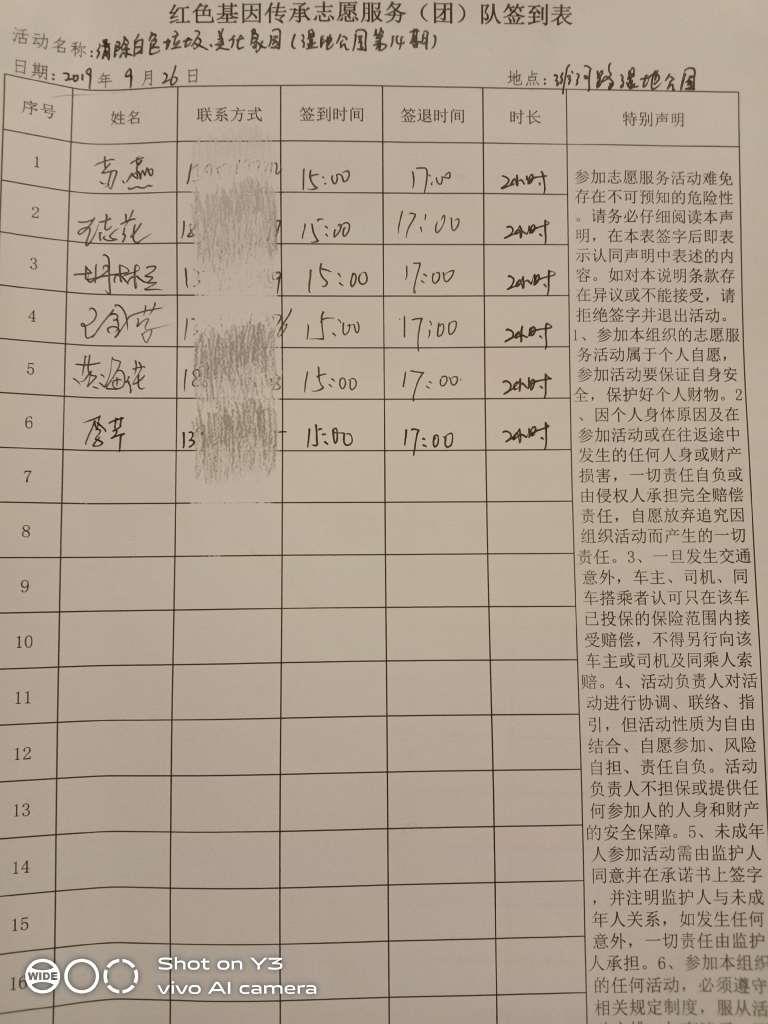 红色基因传承志愿服务（团）队签到表
活动名称：清除白色垃圾、美化家园（湿地公园第14期）
日期：2019年9月26日 地点：路湿地公园
序号 姓名 联系方式 签到时间 签退时间 时长 特别声明
1 15:00 17:00 2小时
2 15:00 17:00 2小时
3 15:00 17:00 2小时
4 15:00 17:00 2小时
5 黄海花 15:00 17:00 2小时
6 15:00 17:00 2小时
7
8
9
10
11
12
13
14
15
16
参加志愿服务活动难免
存在不可预知的危险性
。请务必仔细阅读本声
明，在本表签字后即表
示认同声明中表述的内
容。如对本说明条款存
在异议或不能接受，请
拒绝签字并退出活动。
1、参加本组织的志愿服
务活动属于个人自愿，
参加活动要保证自身安
全，保护好个人财物。2
、因个人身体原因及在
参加活动或在往返途中
发生的任何人身或财产
损害，一切责任自负或
由侵权人承担完全赔偿
责任，自愿放弃追究因
组织活动而产生的一切
责任。3、一旦发生交通
意外，车主、司机、同
车搭乘者认可只在该车
已投保的保险范围内接
受赔偿，不得另行向该
车主或司机及同乘人索
赔。4、活动负责人对活
动进行协调、联络、指
引，但活动性质为自由
结合、自愿参加、风险
自担、责任自负。活动
负责人不担保或提供任
何参加人的人身和财产
的安全保障。5、未成年
人参加活动需由监护人
同意并在承诺书上签字
，并注明监护人与未成
年人关系，如发生任何
意外，一切责任由监护
人承担。6、参加本组织
的任何活动，必须遵守
相关规定制度，服从活
WIDE
Shot on Y3
vivo AI camera